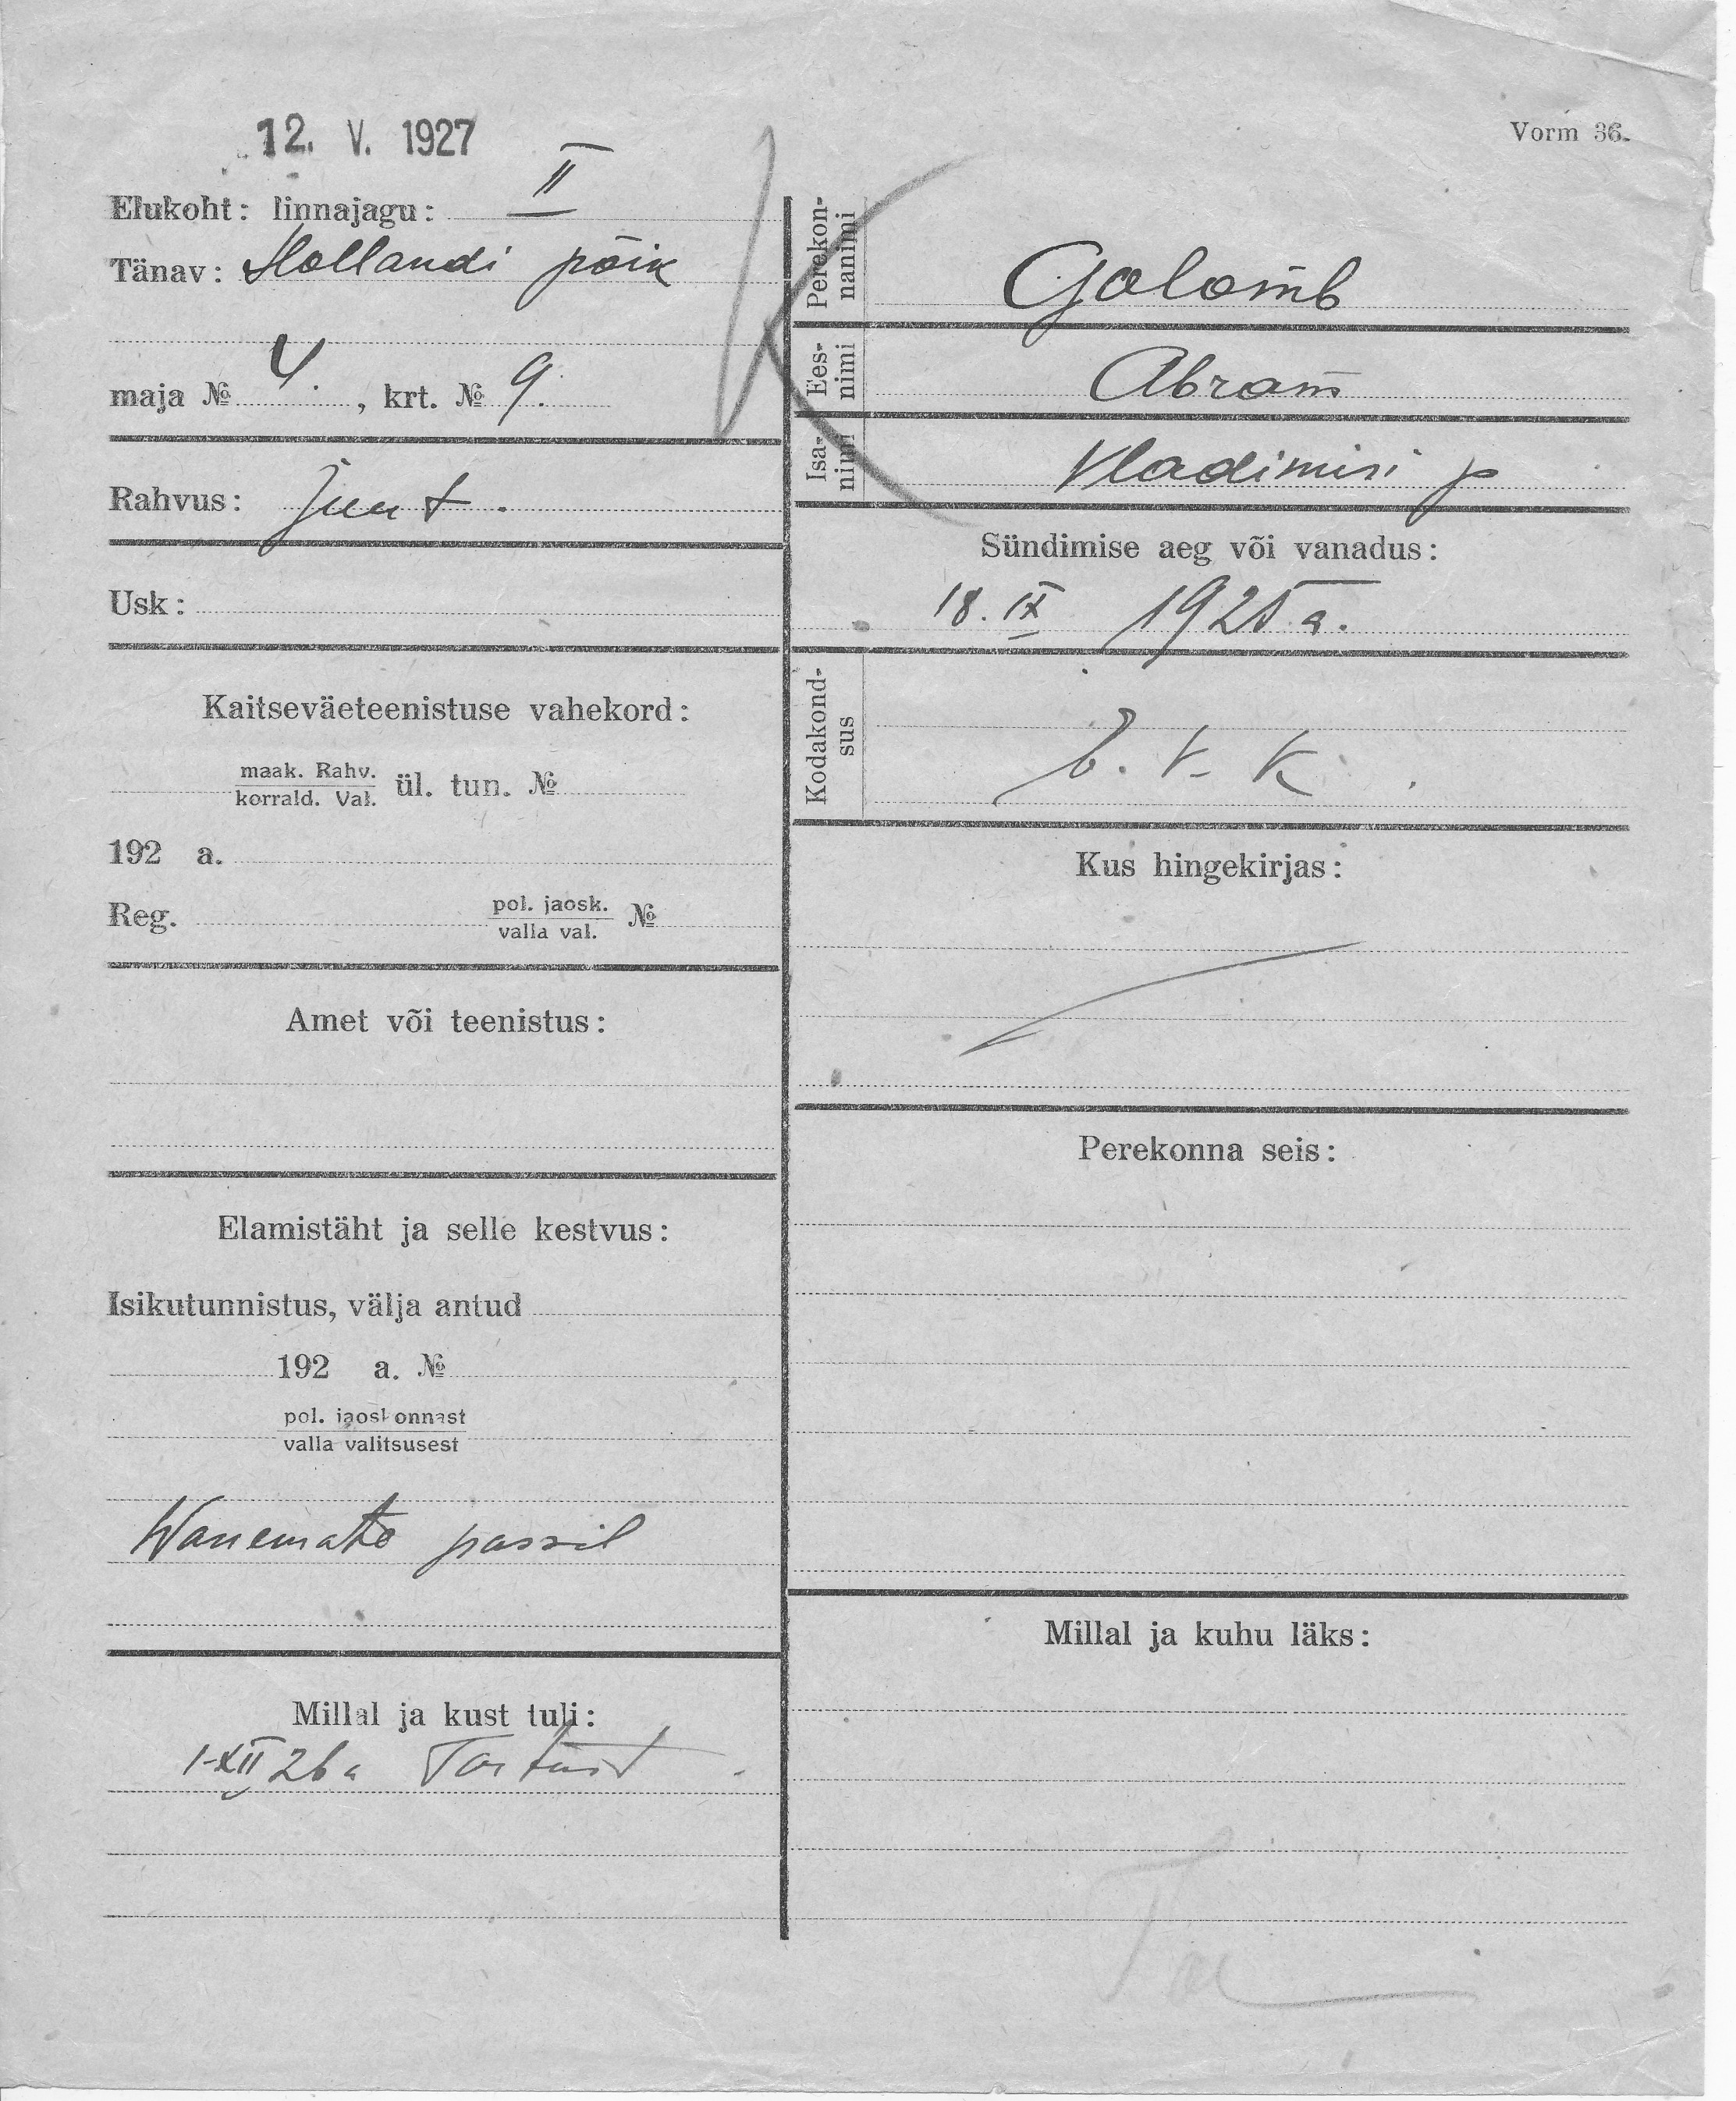 12. V. 1927
Vorm 36.
Elukoht: linnajagu: II
Tänav: Hollandi põik
maja № 4. , krt. № 9.
Rahvus: juut.
Usk:
Kaitseväeteenistuse vahekord:
maak. Rahv.
korrald. Val. ül. tun. №
192 a.
Reg. pol. jaosk.
valla val. №
Amet või teenistus:
Elamistäht ja selle kestvus:
Isikutunnistus, välja antud
192 a. №
pol. jaoskonnast
valla valitsusest
Wanemate passil
Millal ja kust tuli:
1-XII 26 a Tartust
Perekon-
nanimi Golomb
Ees-
nimi Abram
Isa-
nimi Vladimiri p
Sündimise aeg või vanadus:
18. IX 1925 a.
Kodakond-
sus E. V. K.
Kus hingekirjas:
Perekonna seis:
Millal ja kuhu läks: